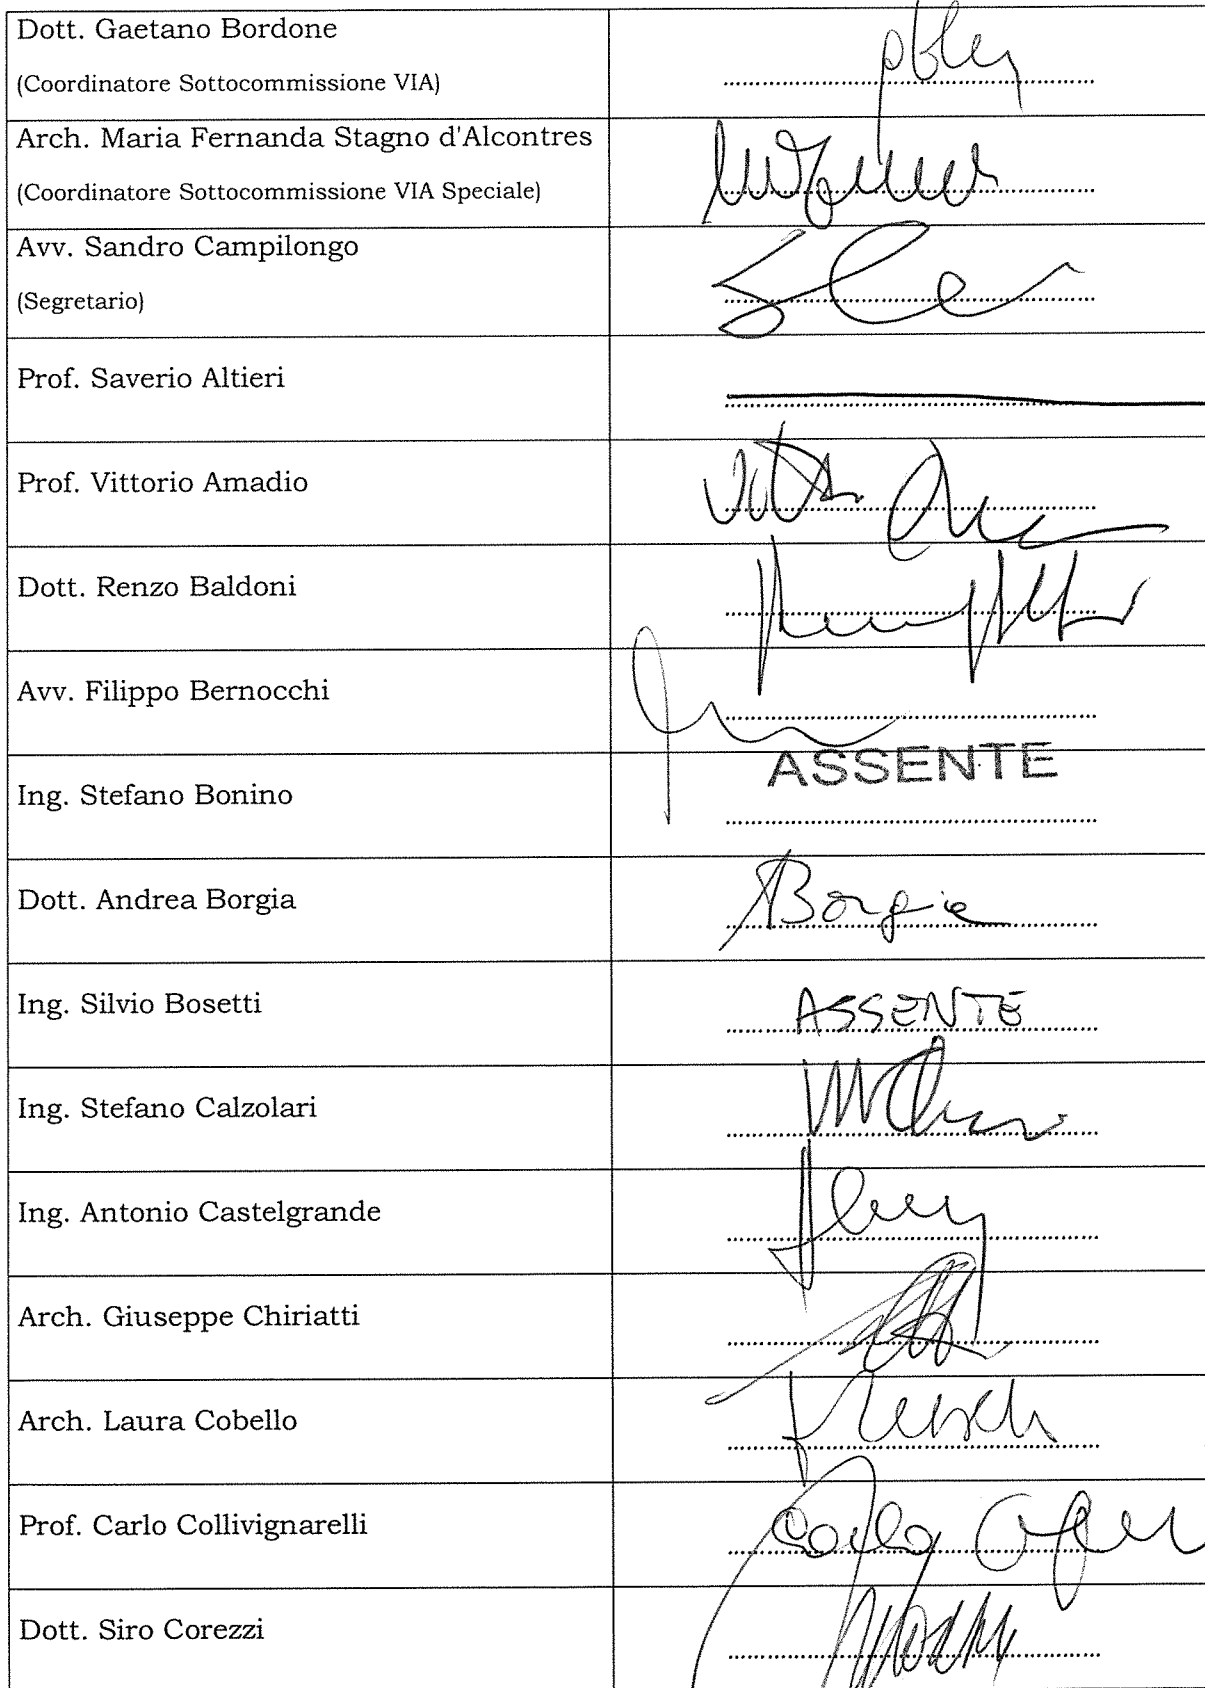 Dott. Gaetano Bordone
(Coordinatore Sottocommissione VIA)
Arch. Maria Fernanda Stagno d'Alcontres
(Coordinatore Sottocommissione VIA Speciale)
Avv. Sandro Campilongo
(Segretario)
Prof. Saverio Altieri
Prof. Vittorio Amadio
Dott. Renzo Baldoni
Avv. Filippo Bernocchi
ASSENTE
Ing. Stefano Bonino
Dott. Andrea Borgia
Borgia
Ing. Silvio Bosetti
ASSENTE
Ing. Stefano Calzolari
Ing. Antonio Castelgrande
Arch. Giuseppe Chiriatti
Arch. Laura Cobello
Prof. Carlo Collivignarelli
Carlo
Dott. Siro Corezzi